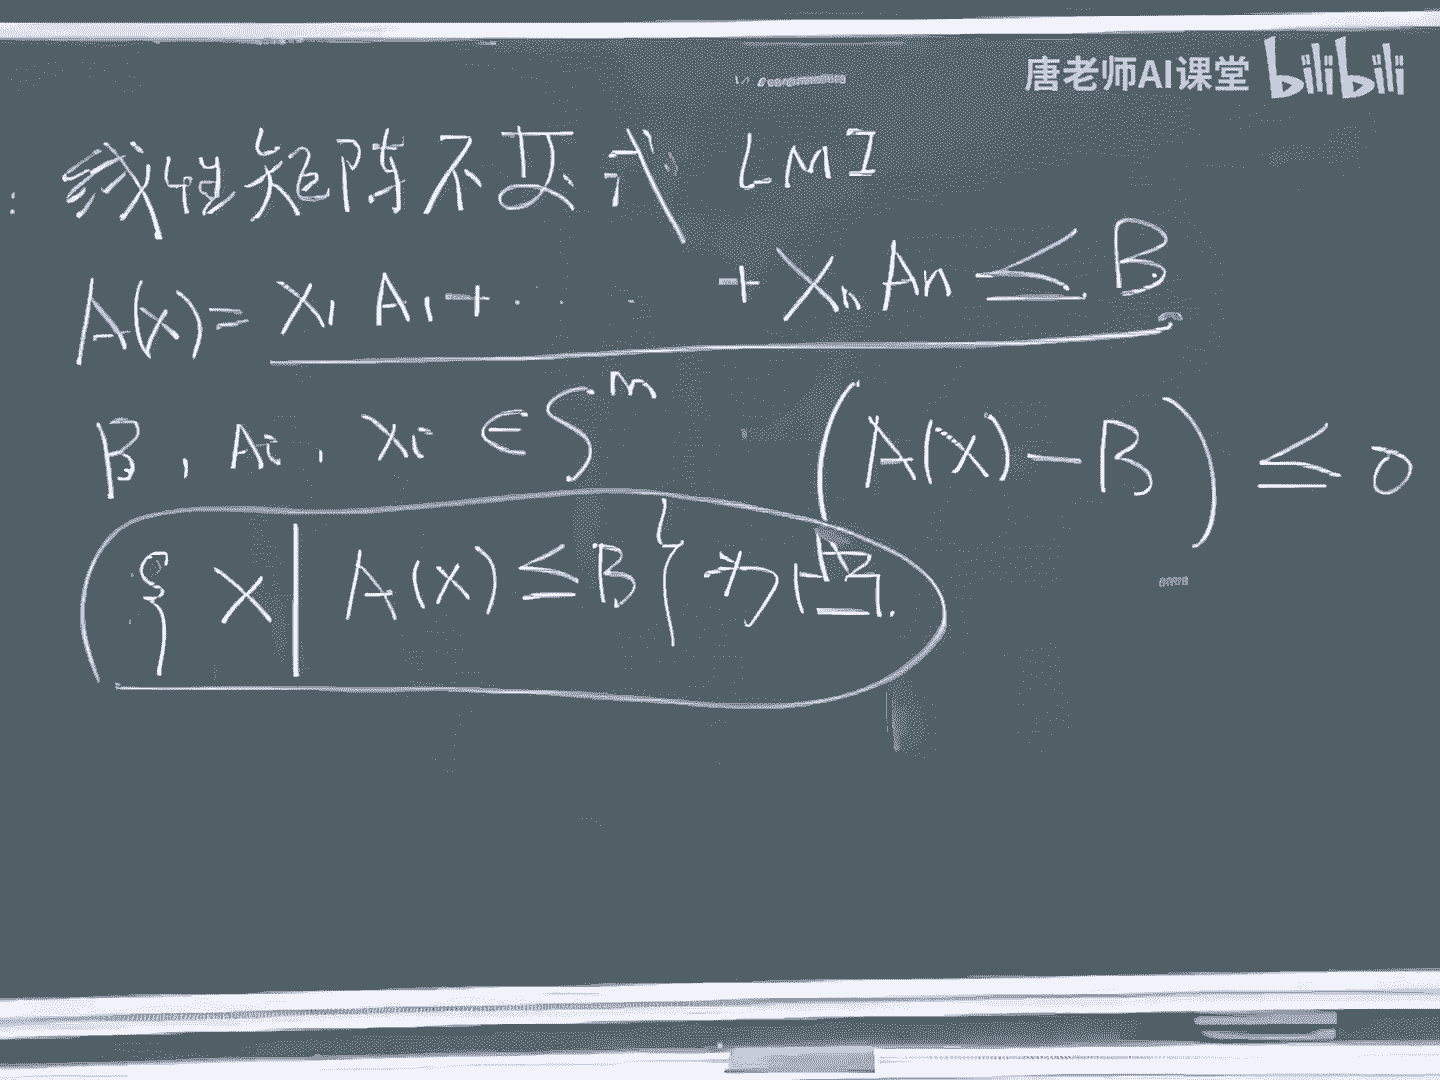 唐老师AI课堂 bilibili
: 线性矩阵不变式 LMI
A(x) = X₁ A₁ + · · · + Xₙ Aₙ ≤ B
B , Ai , Xi ∈ Sᵐ (A(X) − B) ≤ 0
{ X | A(X) ≤ B } 为凸.